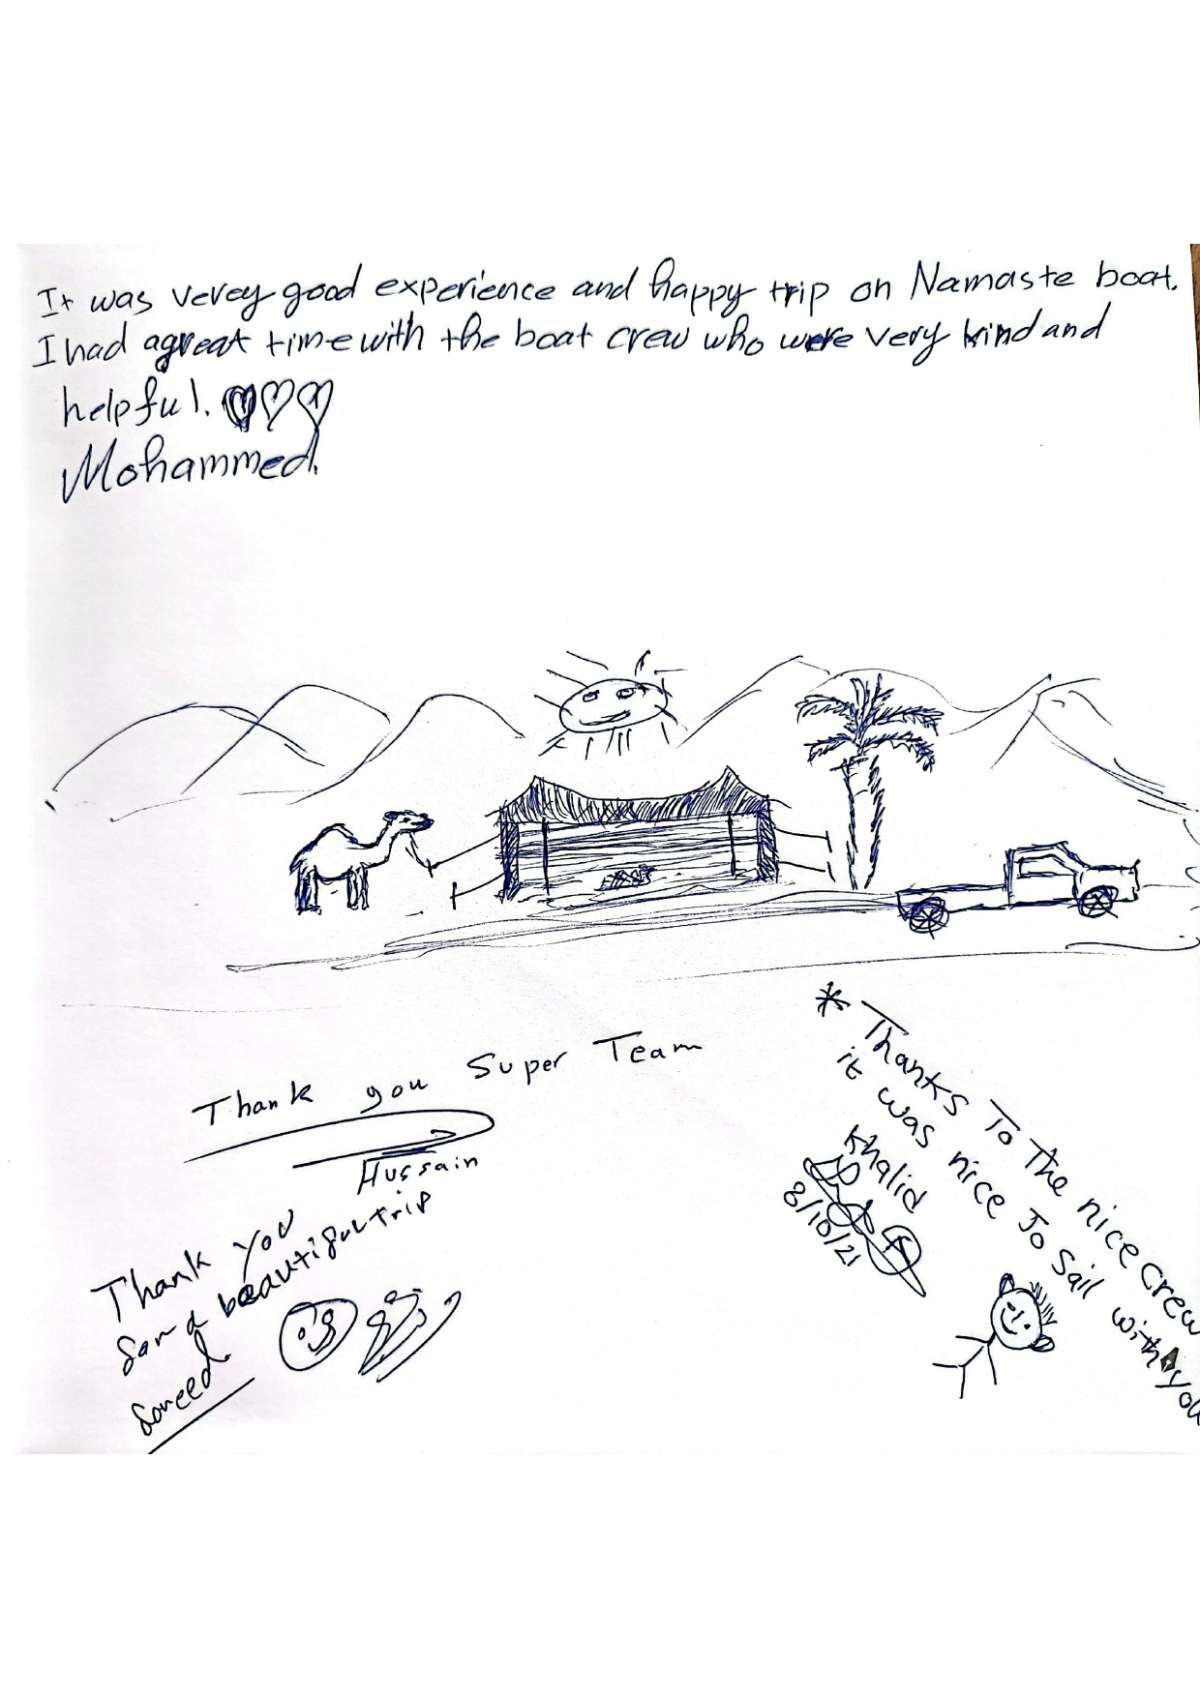 It was verey good experience and happy trip on Namaste boat.
I had a great time with the boat crew who were very kind and
helpful.
Mohammed.
Thank you Super Team
Hussain
Thank you
for a beautiful trip
Saeed
* Thanks To The nice crew
it was nice To Sail with you
Khalid
8/10/21